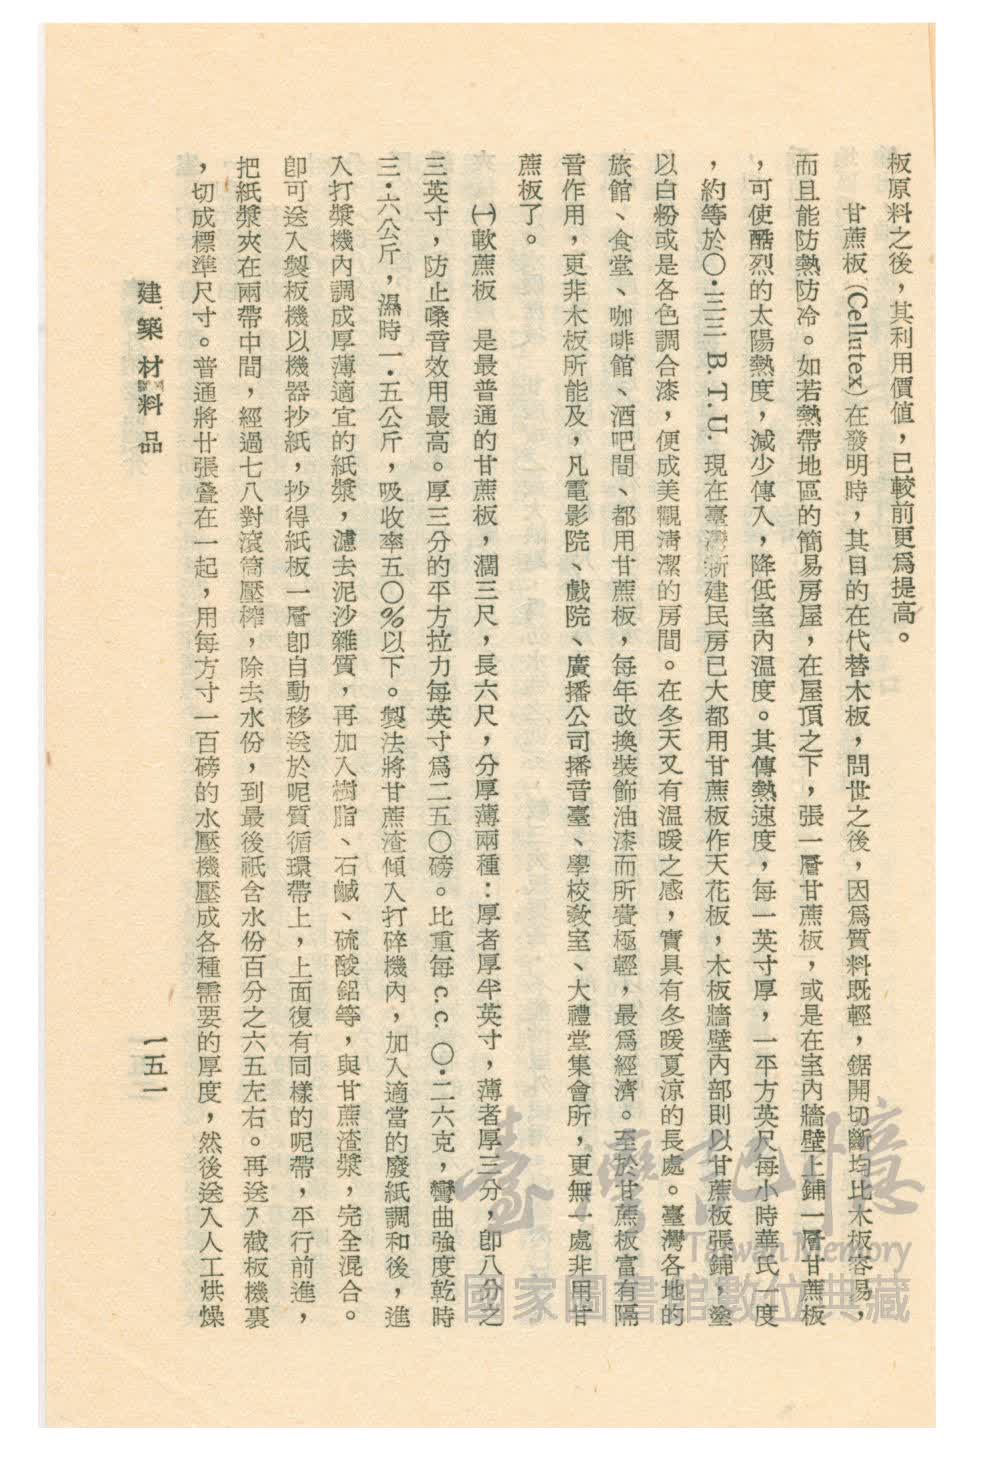 板原料之後，其利用價値，已較前更爲提高。
甘蔗板（Cellutex）在發明時，其目的在代替木板，問世之後，因爲質料既輕，鋸開切斷均比木板容易，
而且能防熱防冷。如若熱帶地區的簡易房屋，在屋頂之下，張一層甘蔗板，或是在室內牆壁上鋪一層甘蔗板
，可使酷烈的太陽熱度，減少傳入，降低室內溫度。其傳熱速度，每一英寸厚，一平方英尺每小時華氏一度
，約等於〇・三三 B.T.U. 現在臺灣新建民房已大都用甘蔗板作天花板，木板牆壁內部則以甘蔗板張鋪，塗
以白粉或是各色調合漆，便成美觀清潔的房間。在冬天又有溫暖之感，實具有冬暖夏涼的長處。臺灣各地的
旅館、食堂、咖啡館、酒吧間、都用甘蔗板，每年改換裝飾油漆而所費極輕，最爲經濟。至於甘蔗板富有隔
音作用，更非木板所能及，凡電影院、戲院、廣播公司播音臺、學校敎室、大禮堂集會所，更無一處非用甘
蔗板了。
㈠軟蔗板　是最普通的甘蔗板，濶三尺，長六尺，分厚薄兩種：厚者厚半英寸，薄者厚三分，卽八分之
三英寸，防止嗓音效用最高。厚三分的平方拉力每英寸爲二五〇磅。比重每c.c.〇・二六克，彎曲強度乾時
三・六公斤，濕時一・五公斤，吸收率五〇％以下。製法將甘蔗渣傾入打碎機內，加入適當的廢紙調和後，進
入打漿機內調成厚薄適宜的紙漿，濾去泥沙雜質，再加入樹脂、石鹼、硫酸鋁等，與甘蔗渣漿，完全混合。
卽可送入製板機以機器抄紙，抄得紙板一層卽自動移送於呢質循環帶上，上面復有同樣的呢帶，平行前進，
把紙漿夾在兩帶中間，經過七八對滾筒壓榨，除去水份，到最後祇含水份百分之六五左右。再送入截板機裏
，切成標準尺寸。普通將廿張疊在一起，用每方寸一百磅的水壓機壓成各種需要的厚度，然後送入人工烘燥
建築材料品
一五一
臺灣記憶
Taiwan Memory
國家圖書館數位典藏